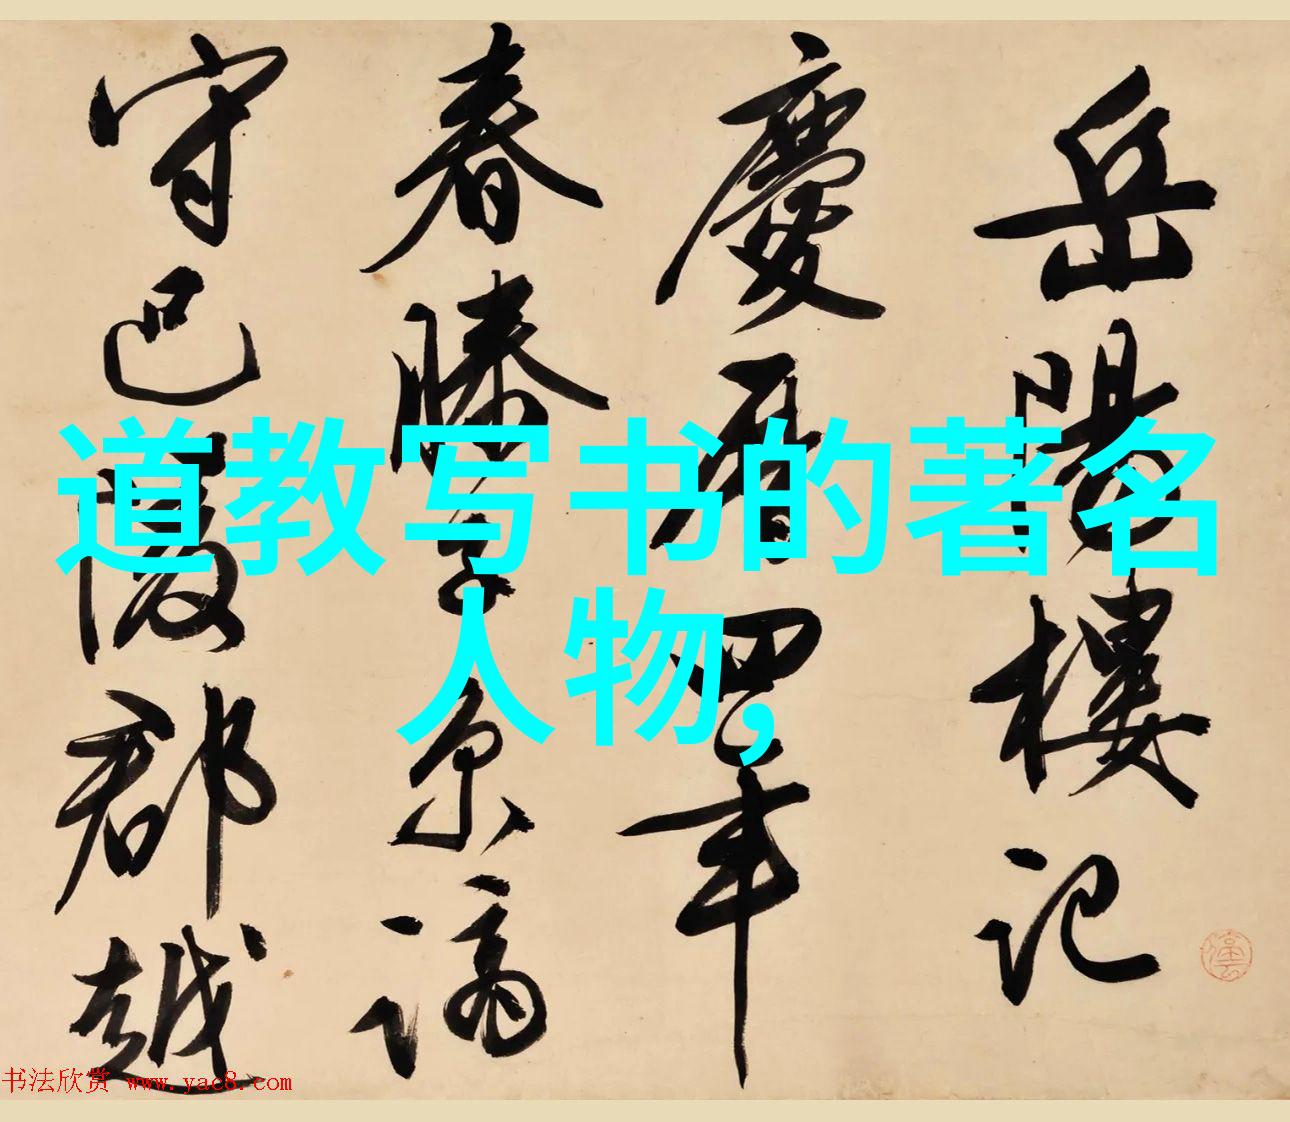 岳陽樓記
慶曆四年
春滕子京謫
守巴陵郡越
道教写书的著名
人物,
书法欣赏 www.yac8.com